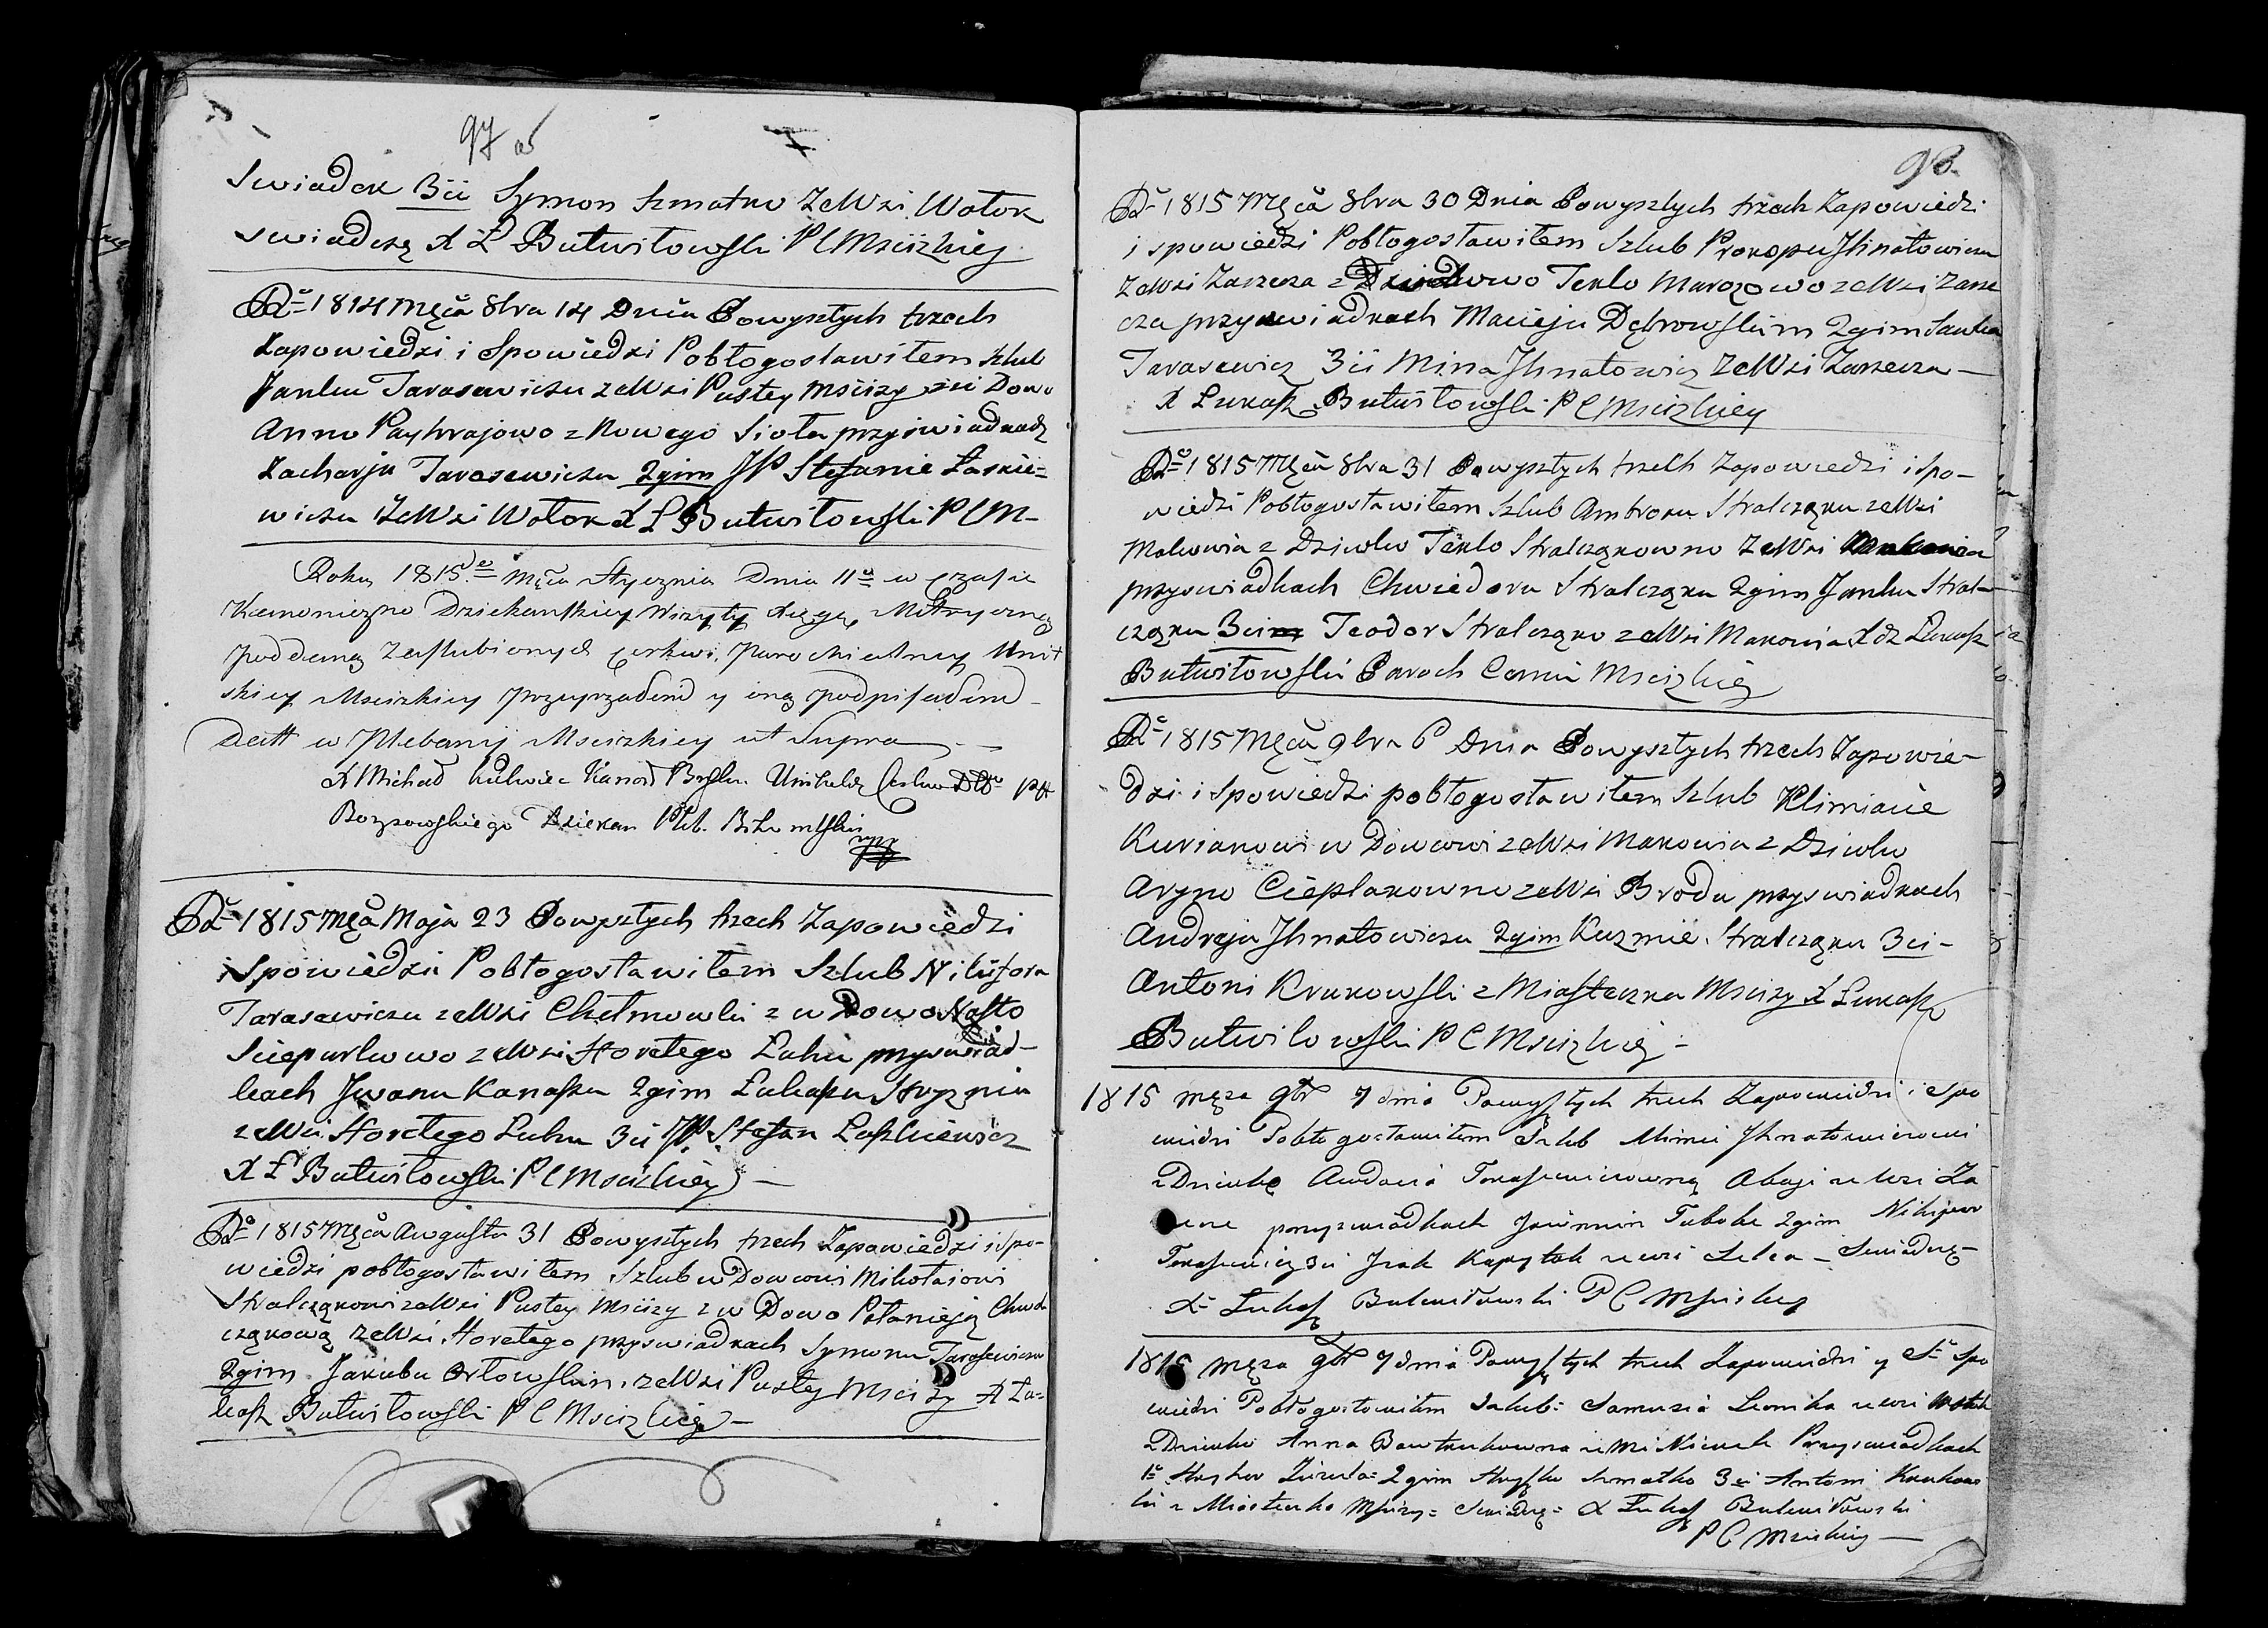 97 об
Swiadek 3ci Symon Szmatko ze Wsi Wołok
swiadczą X Ł Butwiłowski P C Msciżkiey
Rº 1814 Mca 8bra 14 Dnia Powyszłych trzech
Zapowiedzi i Spowiedzi Pobłogosławiłem szlub
Janku Tarasewiczu ze Wsi Pustey Mściży z w Dowo
Anno Payhrajowo z Nowego Sioła przy swiadkach
Zacharju Tarasewiczu 2gim JP Stefanie Łaskie-
wiczu ze Wsi Wołok X Ł Butwiłowski P C M-
Roku 1815º Mca Stycznia Dnia 11º w czasie
Kanoniczno Dziekanskiey Wizyty Xięgę Metryczną
poddaną Zaslubionych cerkwi Parochialney Unit
skiey Msciżkiey przeyrzałem y oną podpisałem
Datt w Plebanij Msciżkiey ut Supra
X Michał Kulwiec Kanon Brzes.
Borysowskiego Dziekan Pleb.
mpp
Rº 1815 Mca Maja 23 Powyszłych trzech Zapowiedzi
i Spowiedzi Pobłogosławiłem Szlub Nikifora
Tarasewicza ze Wsi Chełmowki z w Dowo Nasto
Sciepurkowo ze Wsi Horełego Łuhu przy swiad-
kach Jwanu Kanaszu 2gim Łukaszu Hryzniu
ze Wsi Horełego Łuhu 3ci JP Stefan Łaszkiewicz
X Ł Butwiłowski P C Msciżkiey -
Rº 1815 Mca Augusta 31 Powyszłych trzech Zapowiedzi i Spo-
wiedzi pobłogosławiłem Szlub w Dowcowi Mikołaiowi
Stralcząkowi ze Wsi Pustey Mściży z w Dowo Połanieją
czakową ze Wsi Horełego przy swiadkach Symonu Tarasewiczu
2gim Jakubu Orłowskim ze Wsi Pustey Mściży X Łu-
kasz Butwiłowski P C Msciżkiey -
98.
Rº 1815 Mca 8bra 30 Dnia Powyszłych trzech Zapowiedzi
i spowiedzi Pobłogosławiłem Szlub Prokopu Jhnatowiczu
ze Wsi Zarzecza z Dziewkowo Teklo Marozowo ze Wsi Zarze
cza przy swiadkach Macieju Dąbrowskim 2gim Sauka
Tarasewicz 3ci Mina Jhnatowicz ze Wsi Zarzecza -
X Łukasz Butwiłowski P C Msciżkiey
Rº 1815 Mca 8bra 31 Powyszłych trzech Zapowiedzi i spo-
wiedzi Pobłogosławiłem Szlub Ambrożu Stralcząku ze Wsi
Makowia z Dziewko Teklo Stralcząkowno ze Wsi Makowia
przy swiadkach Chwiedoru Stralcząku 2gim Janku Stral-
cząku 3ci Teodor Stralcząko ze Wsi Makowia Xdz Łukasz
Butwiłowski Paroch Cerkwi Msciżkiey
Rº 1815 Mca 9bra 6 Dnia Powyszłych trzech Zapowie-
dzi i Spowiedzi pobłogosławiłem Szlub Klimiacie
Kurjanowi w Dowcowi ze Wsi Makowia z Dziewko
Aryno Cieplakowno ze Wsi Brodu przy swiadkach
Andreju Jhnatowiczu 2gim Kuzmie Stralcząku 3ci-
Antoni Krukowski z Miasteczka Msciży X Łukasz
Butwiłowski P C Msciżkiey -
1815 męza 9br 7 dnia Powyszłych trzech Zapowiedzi i Spo
wiedzi Pobłogosławiłem Szlub Minie Jhnatowiczowi
z Dziewką Audocia Tarasewiczowną Aboje ze wsi Za
przyswiadkach 2gim Nikipor
Tarasewicz 3ci Jzak Kapyłok ze wsi Selca - Swiadczę-
X Łukasz Butwiłowski P C Mscizkiey
1815 męza 9br 7 dnia Powyszłych trzech Zapowiedzi y Sº Spo
wiedzi Pobłogosławiłem Szlub: Samusia Leonika ze wsi Wołok
z Dziewko Anna ze wsi Przyswiadkach
1º 2gim Hryszko Szmatko 3ci Antoni Krukows
ki z Miasteczka Mscizy = Swiadczę = X Łukasz Butwiłowski
P C Mscizkiey -